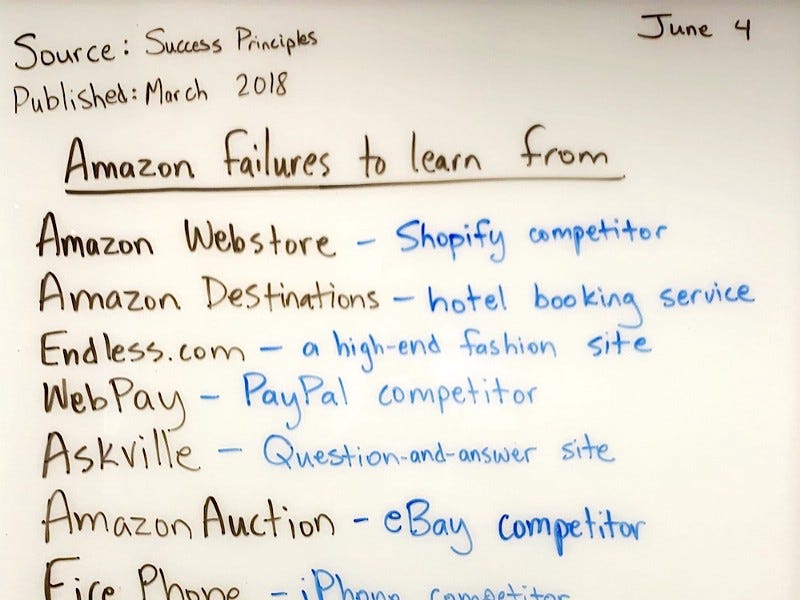 June 4
Source: Success Principles
Published: March 2018
Amazon failures to learn from
Amazon Webstore - Shopify competitor
Amazon Destinations - hotel booking service
Endless.com - a high-end fashion site
WebPay - PayPal competitor
Askville - Question-and-answer site
Amazon Auction - eBay competitor
Fire Phone - iPhone competitor